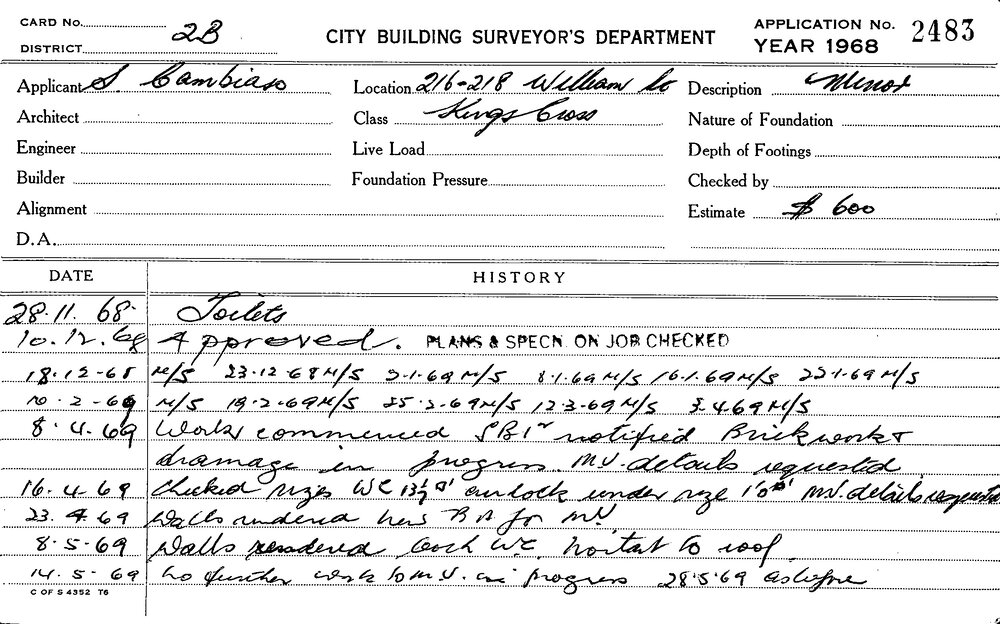 CARD No.
DISTRICT 2B
CITY BUILDING SURVEYOR'S DEPARTMENT
APPLICATION No. 2483
YEAR 1968
Applicant S Cambiaso
Location 216-218 William St
Description Minor
Architect
Class Kings Cross
Nature of Foundation
Engineer
Live Load
Depth of Footings
Builder
Foundation Pressure
Checked by
Alignment
Estimate $ 600
D.A.
DATE HISTORY
28.11.68 Toilets
10.12.68 Approved. PLANS & SPECN. ON JOB CHECKED
18-12-68 N/S 23-12-68 N/S 1-69 N/S 8-1-69 N/S 16-1-69 N/S 22-1-69 N/S
10-2-69 N/S 19-2-69 N/S 25-2-69 N/S 12-3-69 N/S 3-4-69 N/S
8.4.69 Works commenced notified Brickwork &
drainage in progress. M.V. details requested
16.4.69 Checked sizes WC airlock under size M.V. details requested
23.4.69 Walls rendered for M.V.
8-5-69 Walls rendered WC to roof
14.5-69 No further work to M.V. in progress 28.5.69 as before
C OF S 4352 T6